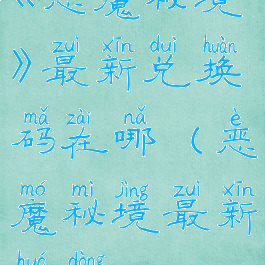 《恶魔秘境
zuì xīn duì huàn
》最新兑换
mǎ zài nǎ è
码在哪（恶
mó mì jìng zuì xīn
魔秘境最新
huó dòng